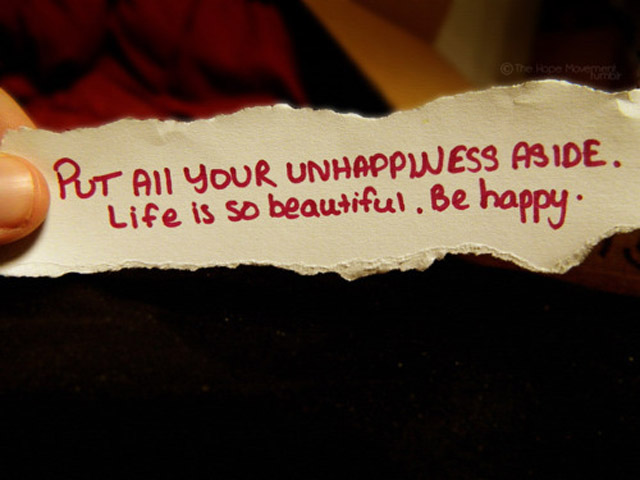 © The Hope Movement
tumblr
PUT All YOUR UNHAPPINESS ASIDE.
Life is so beautiful. Be happy.